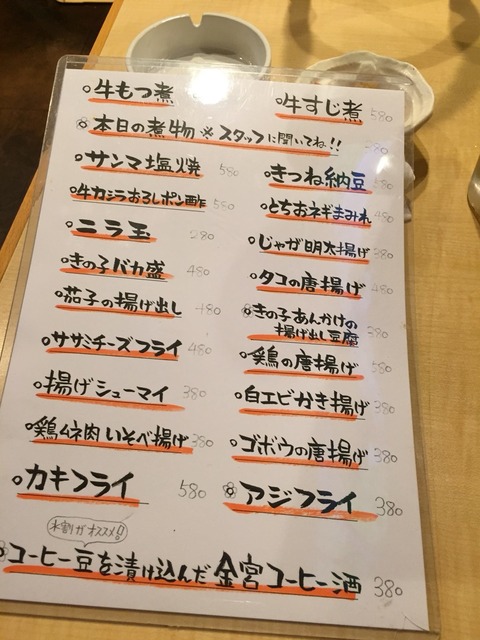 牛もつ煮
牛すじ煮 580
本日の煮物 ※スタッフに聞いてね!! 380
サンマ塩焼 580
きつね納豆 580
牛カシラおろしポン酢 580
とちおネギまみれ 480
ニラ玉 280
じゃが明太揚げ 380
きの子バカ盛 480
タコの唐揚げ 480
茄子の揚げ出し 480
きの子あんかけの
揚げ出し豆腐 380
ササミチーズフライ 480
鶏の唐揚げ 580
揚げシューマイ 380
白エビかき揚げ 380
鶏ムネ肉いそべ揚げ 380
ゴボウの唐揚げ 380
カキフライ 580
アジフライ 380
水割がオススメ!!
コーヒー豆を漬け込んだ 金宮コーヒー酒 380